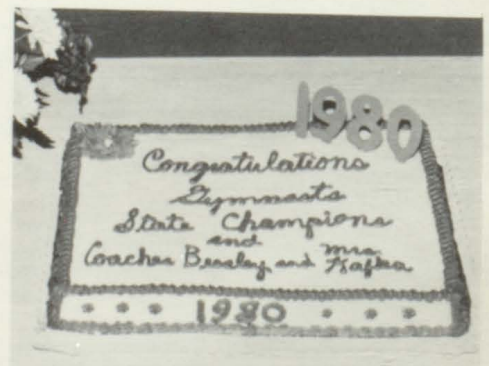 1980
Congratulations
Gymnasts
State Champions
and
Coaches Beasley and Mrs. Kafka
1980